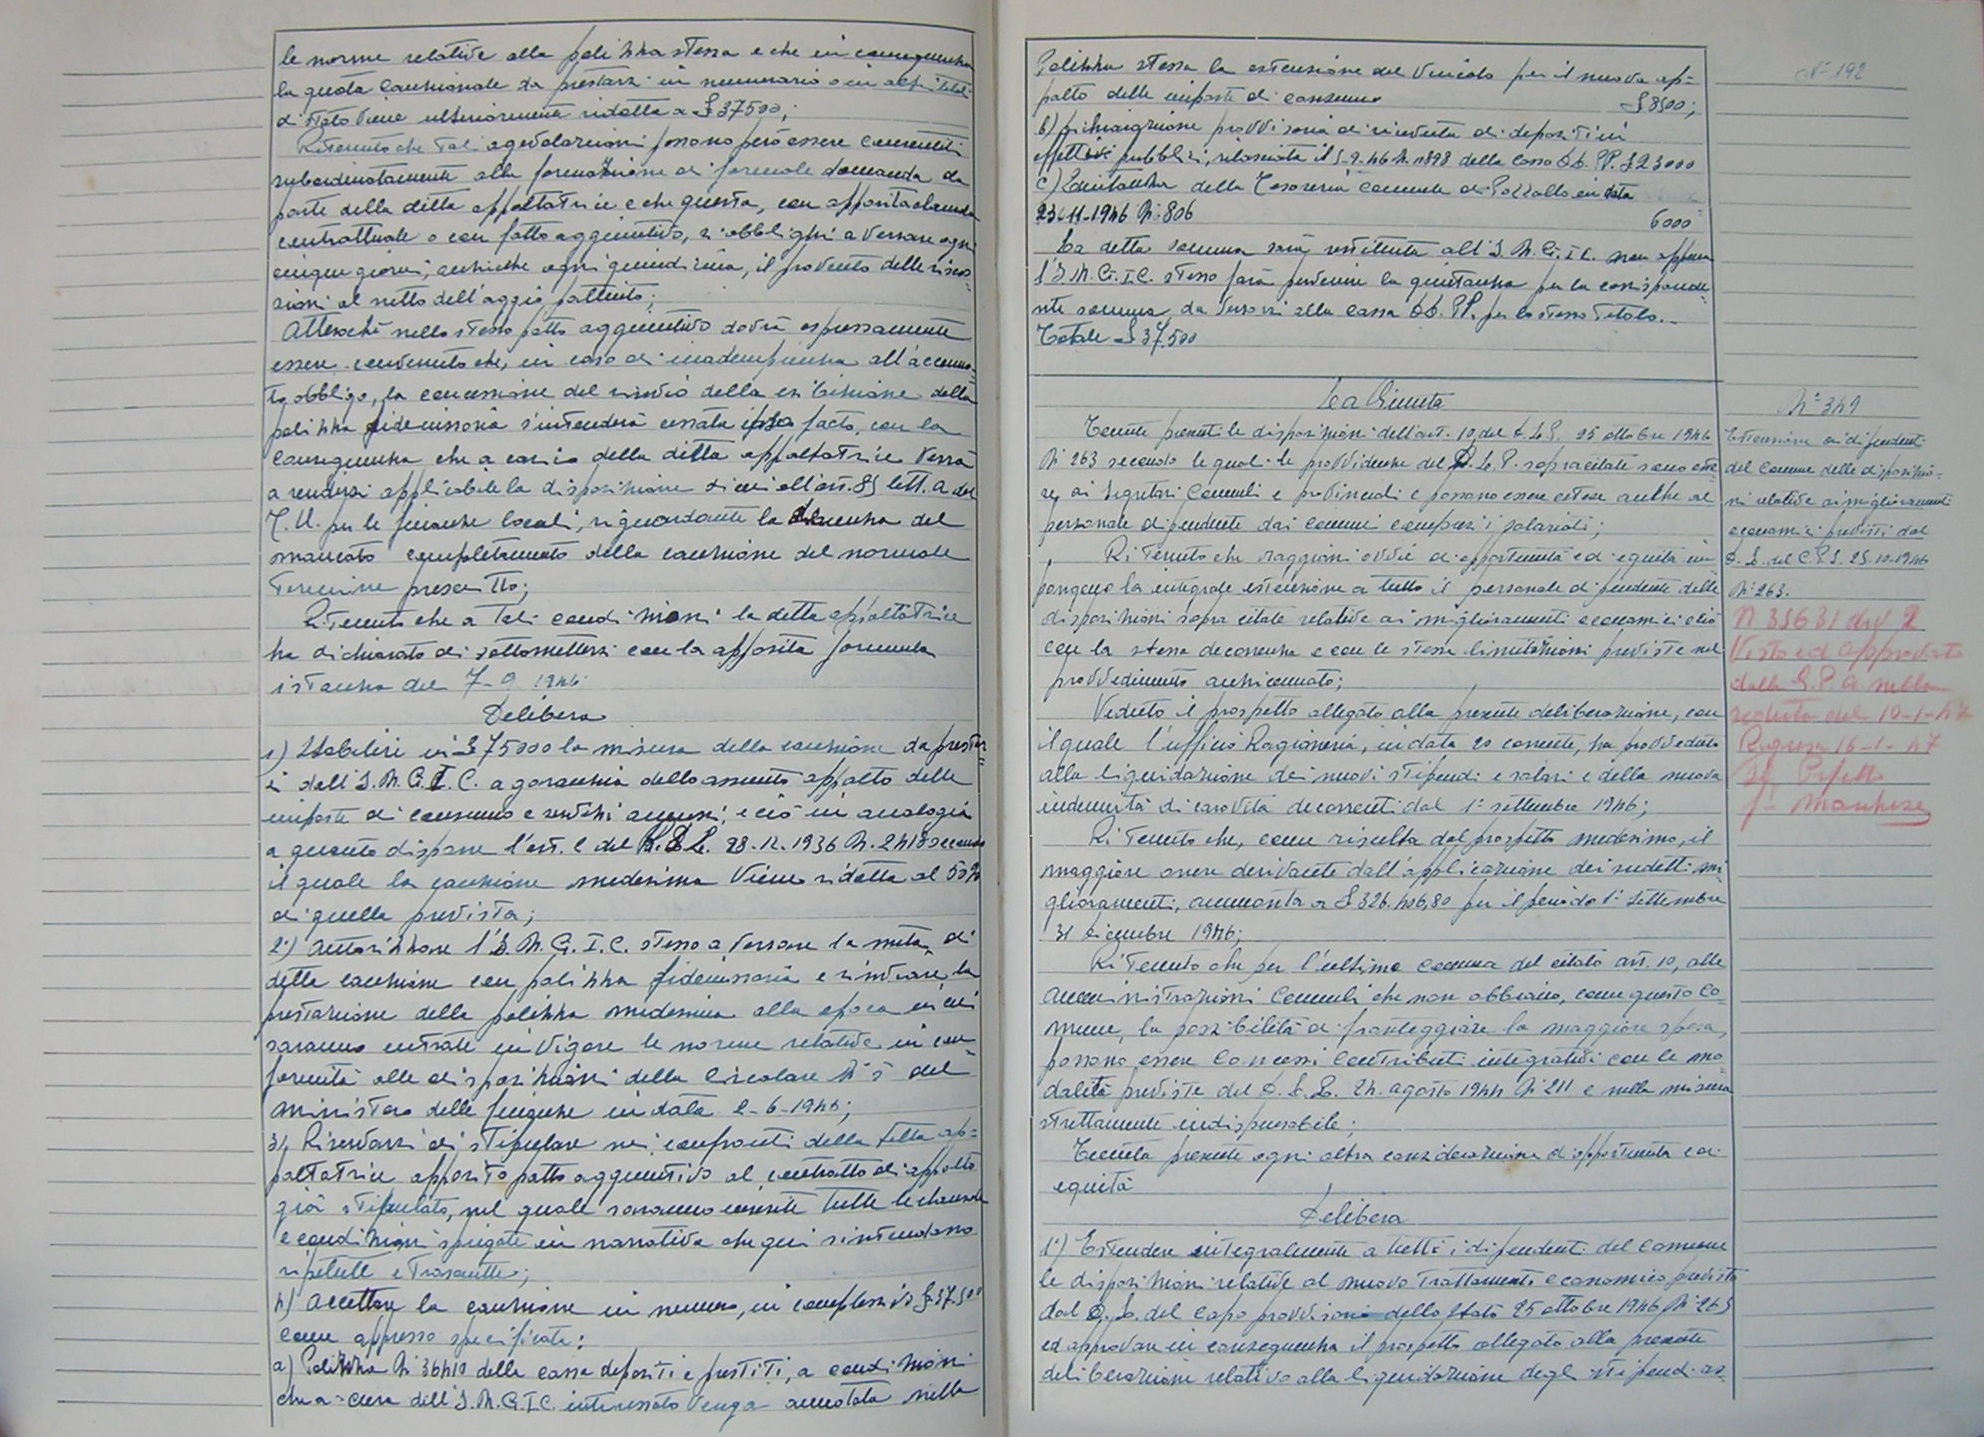 le norme relative alla polizza stessa e che in conseguenza
la quota cauzionale da prestarsi in numerario o in altri titoli
di stato viene ulteriormente ridotta a £ 37500;
Ritenuto che tali agevolazioni possono però essere consentiti
subordinatamente alla formazione di formale domanda da
parte della ditta appaltatrice e che questa, con apposita clausola
contrattuale o con patto aggiuntivo, si obblighi a versare ogni
cinque giorni, anziche ogni quindicina, il provento delle riscos=
sioni al netto dell'aggio pattuito;
Attesochè nello stesso patto aggiuntivo dovrà espressamente
essere convenuto che, in caso di inadempienza all'accenna=
to obbligo, la concessione del rinvio della esibizione della
polizza fideiussoria s'intenderà cessata ipso facto, con la
conseguenza che a carico della ditta appaltatrice verrà
a rendersi applicabile la disposizione di cui all'art. 85 lett. a del
T. U. per le finanze locali, riguardante la decadenza del
mancato completamento della cauzione nel normale
termine prescritto;
Ritenuto che a tali condizioni la detta appaltatrice
ha dichiarato di sottomettersi con la apposita formula
istanza del 7-9 1946
Delibera
1) Stabilire in £ 75000 la misura della cauzione da prestar=
si dall'I.N.G.I.C. a garanzia dello assunto appalto delle
imposte di consumo e servizi annessi, e ciò in analogia
a quanto dispone l'art. 2 del R.D.L. 28-12-1936 N. 2418 secondo
il quale la cauzione medesima viene ridotta al 50%
di quella prevista;
2) Autorizzare l'I.N.G.I.C. stesso a versare la metà di
detta cauzione con polizza fideiussoria e rinviare la
prestazione della polizza medesima alla epoca in cui
saranno entrate in vigore le norme relative in con=
formità alle disposizioni della Circolare N° 5 del
Ministero delle finanze in data 2-6-1946;
3) Riservarsi di stipulare nei confronti della ditta ap=
paltatrice apposito patto aggiuntivo al contratto di appalto
già stipulato, nel quale saranno inserite tutte le clausole
e condizioni spiegate in narrativa che qui s'intendono
ripetute e trascritte;
4) Accettare la cauzione in numero, in complessivo £ 37.500
come appresso specificata:
a) Polizza N° 36410 della cassa depositi e prestiti, a condizioni
che a cura dell'I.N.G.I.C. interessato venga annotata nella
Polizza stessa la estensione del vincolo per il nuovo ap=
palto delle imposte di consumo £ 8500;
b) Dichiarazione provvisoria di ricevuta di depositi in
effetti pubblici, rilasciata il 5-9-46 N. 1898 della Cassa DD. PP. £ 23000
c) Quietanza della Tesoreria Comunale di Pozzallo in data
23-11-1946 N. 806 6000
La detta somma sarà restituita all'I.N.G.I.C. non appena
l'I.N.G.I.C. stesso farà pervenire la quietanza per la corrisponde=
nte somma da versarsi alla cassa DD. PP. per lo stesso titolo.
Totale £ 37.500
N° 192
La Giunta
Tenute presenti le disposizioni dell'art. 10 del D.L.P. 25 ottobre 1946
N° 263 secondo le quali le provvidenze del D.L.P. sopracitate sono este=
se, ai Segretari Comunali e provinciali e possono essere estese anche al
personale dipendente dai comuni compresi i salariati;
Ritenuto che raggioni ovvie di opportunità ed equità im
pongono la integrale estensione a tutto il personale dipendente delle
disposizioni sopra citate relative ai miglioramenti economici e ciò
con la stessa decorrenza e con le stesse limitazioni previste nel
provvedimento anzicennato;
Veduto il prospetto allegato alla presente deliberazione, con
il quale l'ufficio Ragioneria, in data 20 corrente, ha provveduto
alla liquidazione dei nuovi stipendi e salari e della nuova
indennità di carovita decorrenti dal 1° settembre 1946;
Ritenuto che, come risulta dal prospetto medesimo, il
maggiore onere derivante dall'applicazione dei sudetti mi
glioramenti, ammonta a £ 326.406,80 per il periodo 1° settembre
31 dicembre 1946;
Ritenuto che per l'ultimo comma del citato art. 10, alle
amministrazioni Comunali che non abbiano, come questo Co=
mune, la possibilità di fronteggiare la maggiore spesa,
possono essere concessi contributi integrativi con le mo
dalità previste del D.L.L. 24 agosto 1944 N° 211 e nella misura
strettamente indispensabile;
Tenuta presente ogni altra considerazione di opportunità ed
equità
Delibera
1°) Estendere integralmente a tutti i dipendenti del Comune
le disposizioni relative al nuovo trattamento economico previsto
dal D.L. del Capo provvisorio dello Stato 25 ottobre 1946 N° 263
ed approvare in conseguenza il prospetto allegato alla presente
deliberazione relativo alla liquidazione degli stipendi as=
N° 349
Estensione ai dipendenti
del Comune delle disposizio=
ni relative ai miglioramenti
economici previsti dal
D.L. del C.P.S. 25-10-1946
N° 263.
N 35631 div 2
Visto ed approvato
dalla G.P.A. nella
seduta del 10-1-47
Ragusa 16-1-47
Il Prefetto